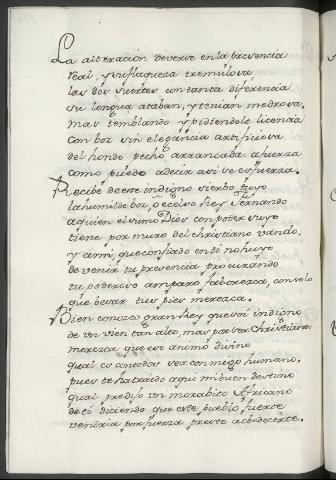 La alteracion deverse en la presencia
real, y su flaqueza tremulosa
las dos suertes con tanta diferencia
su lengua ataban, y tenian medrosa.
mas temblando y pidiendole licencia
con boz sin elegancia artificiosa
del hondo pecho arrancada a fuerza
como puede adecir asi se esfuerza.
Recibe de este indigno sierbo tuyo
la humilde boz, o excelso Rey Fernando
a quien el sumo Dios con poder suyo
tiene por muro del christiano vando,
y a mi, que confiado en ti no huyo
de venir tu presencia procurando
tu poderoso amparo faborezca, con solo
que besar tus pies merezca.
Bien conozco gran Rey que soi indigno
de un vien tan alto, mas por ser Christiano
merezca que ese animo divino
qual es con todos sea conmigo humano.
pues te ha traido aqui mi buen destino
qual predijo un morabito Africano
de ti diciendo que este pueblo fuerte
vendria por fuerza presto a obedecerte.